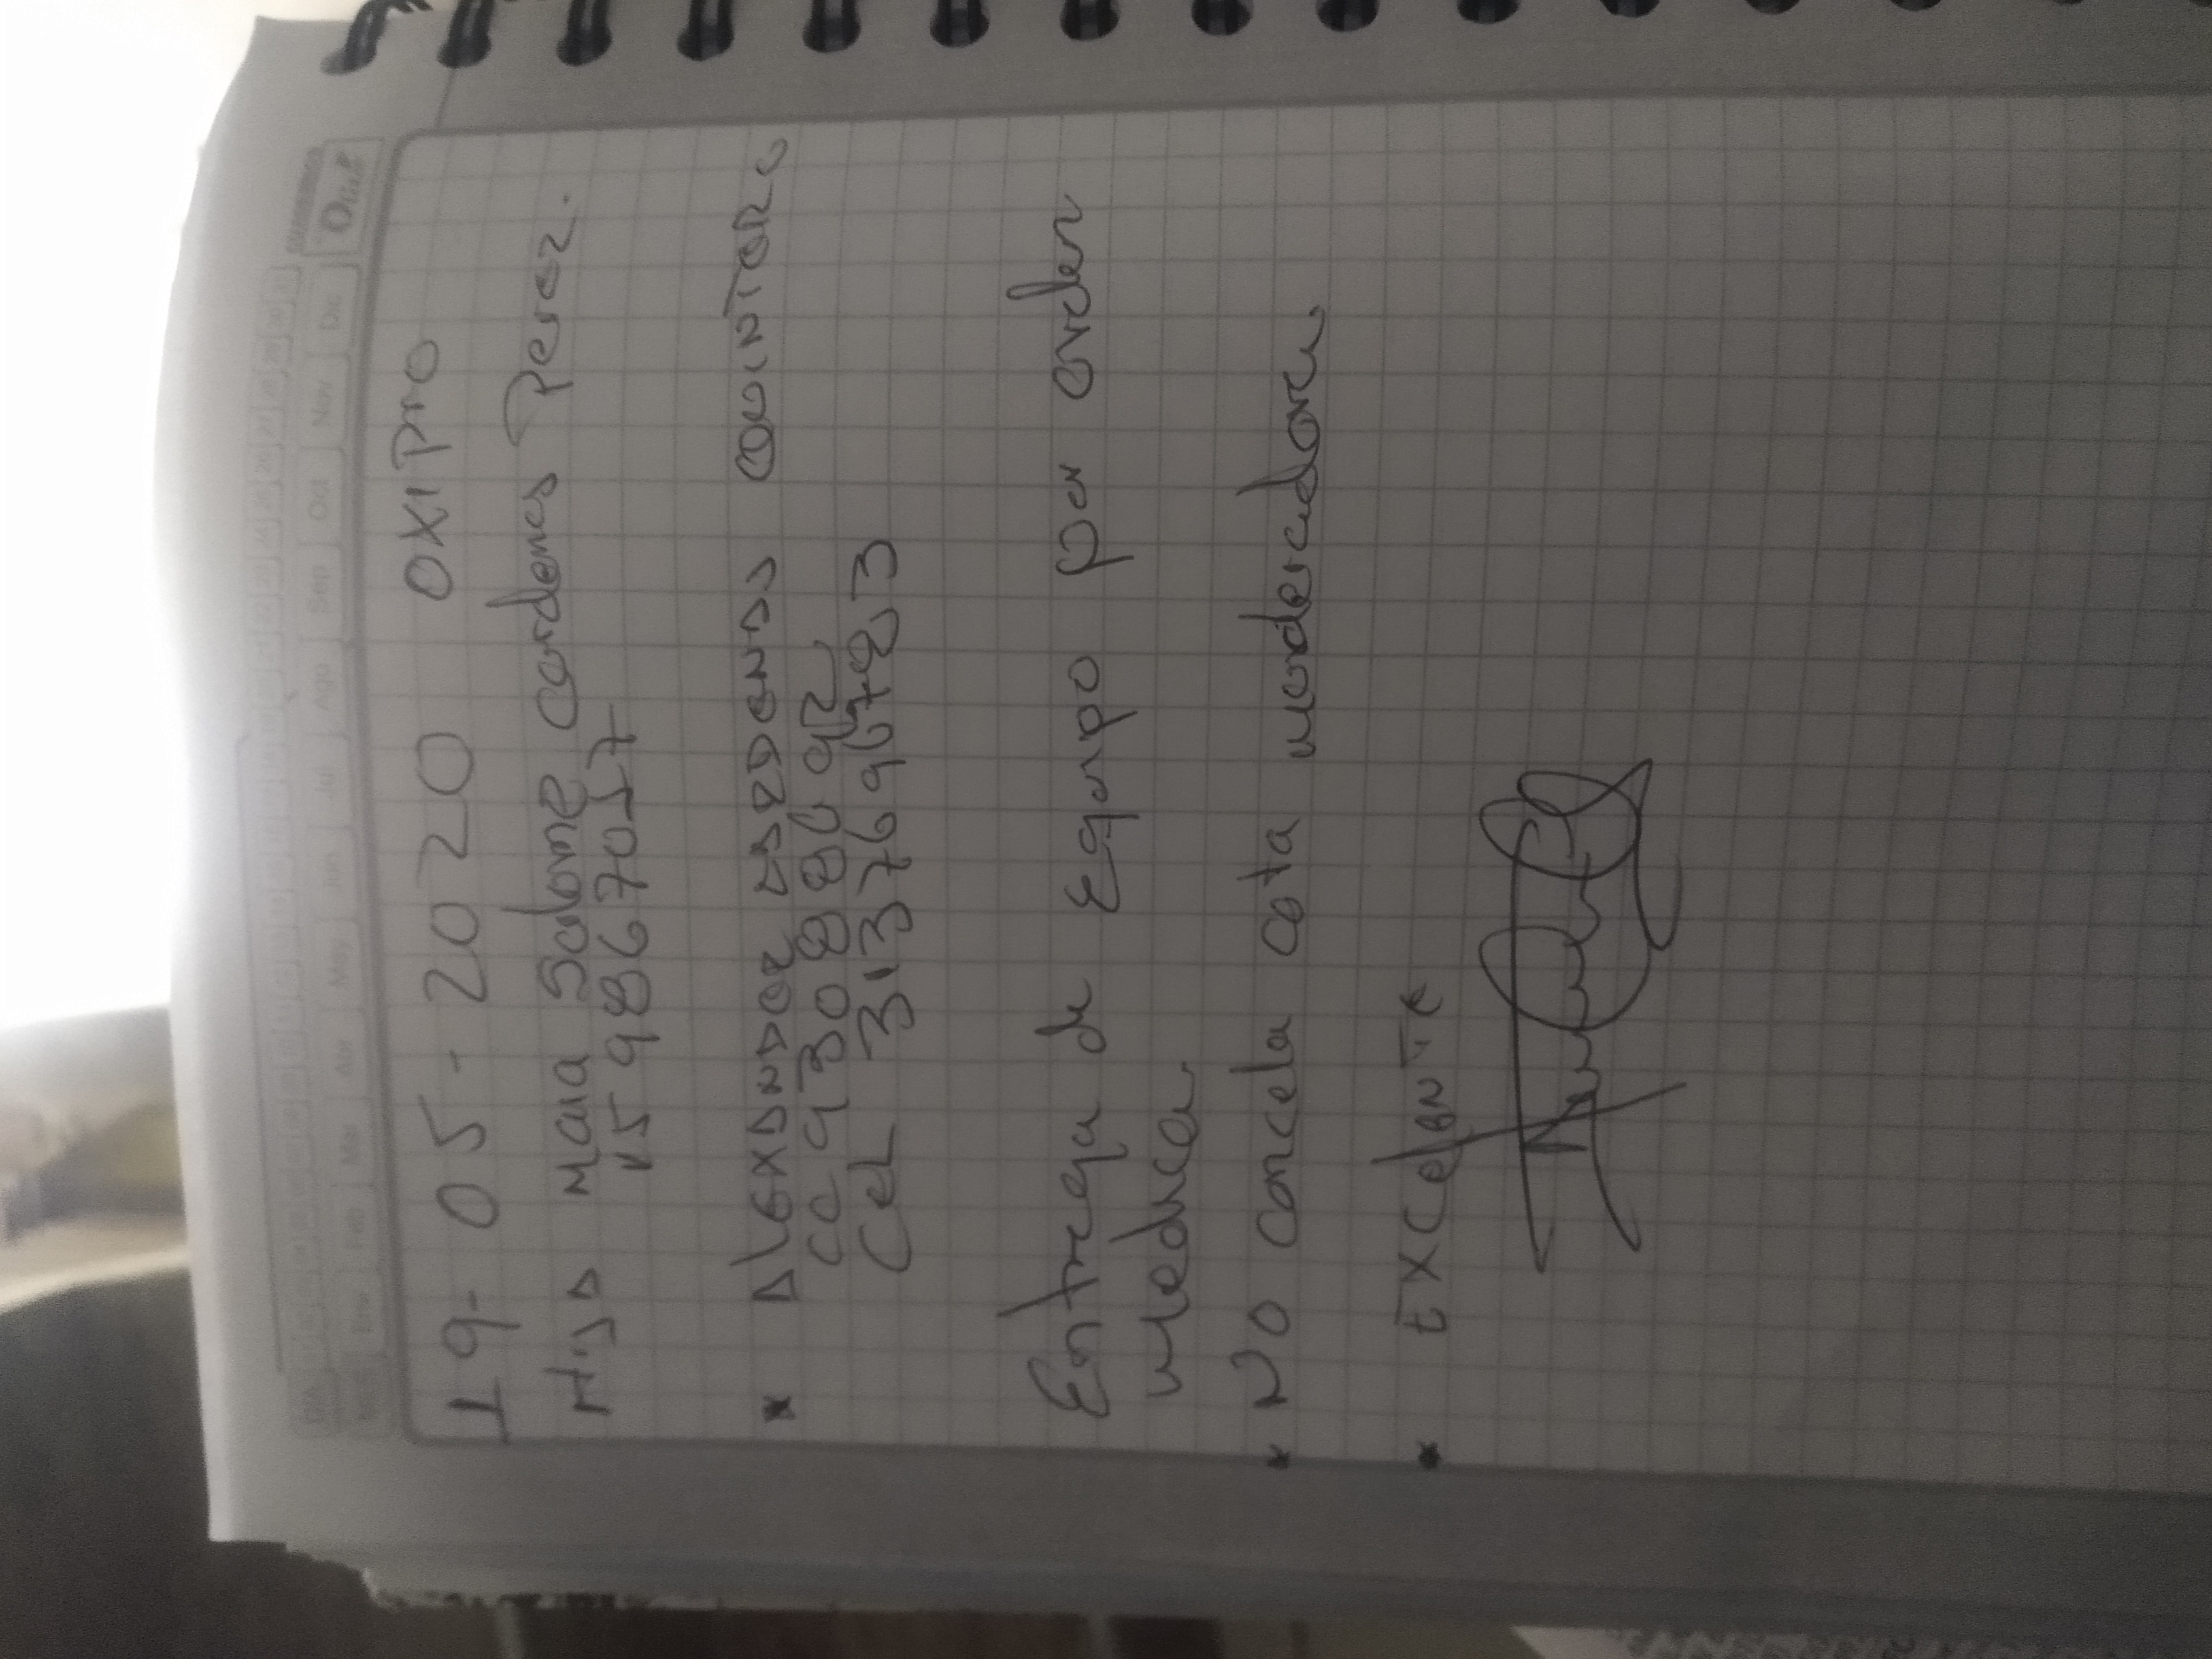 19-05-2020 OXIPRO
HIJA Maia Salome Cardenas Perez.
V5 98670577
* ALEXANDER LADENAS QUINTERO
CC 93088092
CeL 3137696783
Entrega de Equipo por orden
medica
* NO cancela cota moderadora
* EXCELENTE
DIA
Ene Feb Mar Abr May Jun Jul Ago Sep Oct Nov Dic